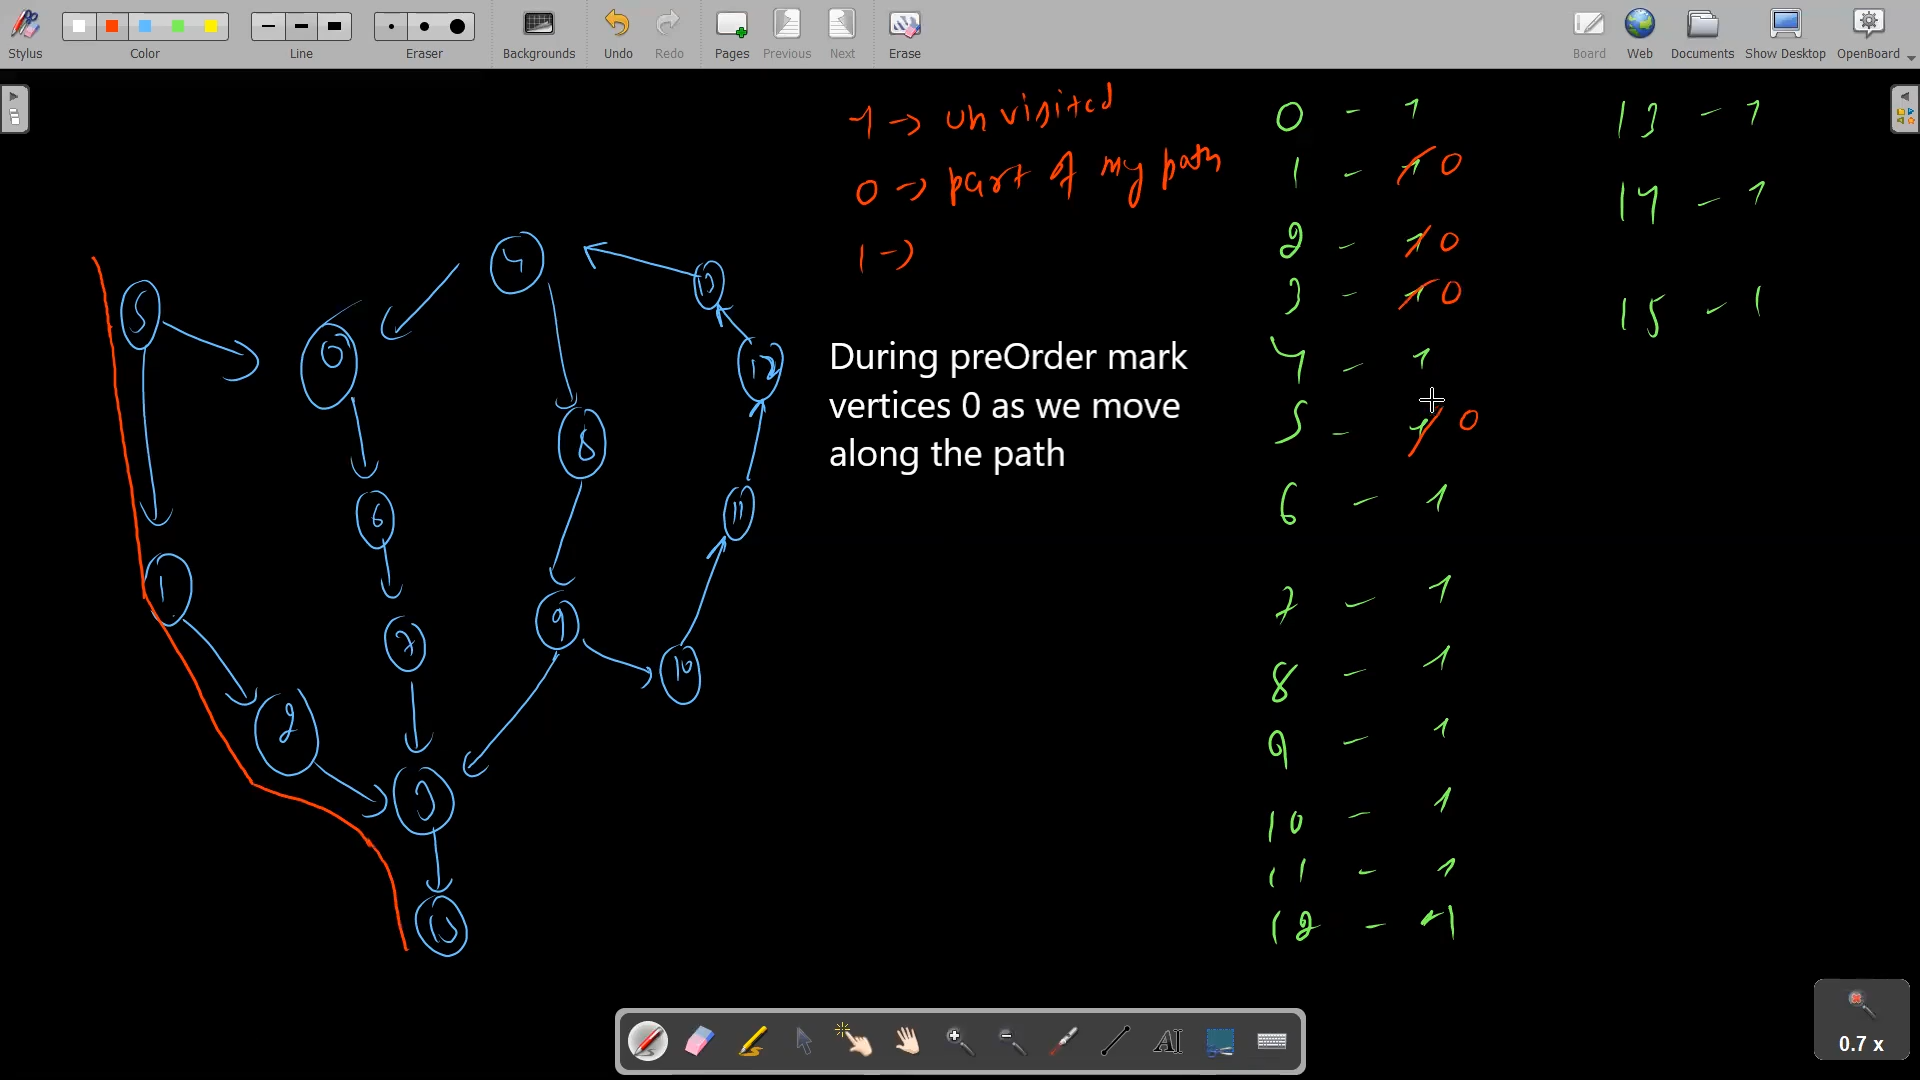 Stylus
Color
Line
Eraser
Backgrounds
Undo
Redo
Pages
Previous
Next
Erase
Board
Web
Documents
Show Desktop
OpenBoard
-1 -> unvisited
0 -> part of my path
1 ->
During preOrder mark
vertices 0 as we move
along the path
0 - -1
1 - -1 0
2 - -1 0
3 - -1 0
4 - -1
5 - -1 0
6 - -1
7 - -1
8 - -1
9 - -1
10 - -1
11 - -1
12 - -1
13 - -1
14 - -1
15 - 1
5
0
4
13
12
6
8
11
1
7
9
10
2
3
0.7 x